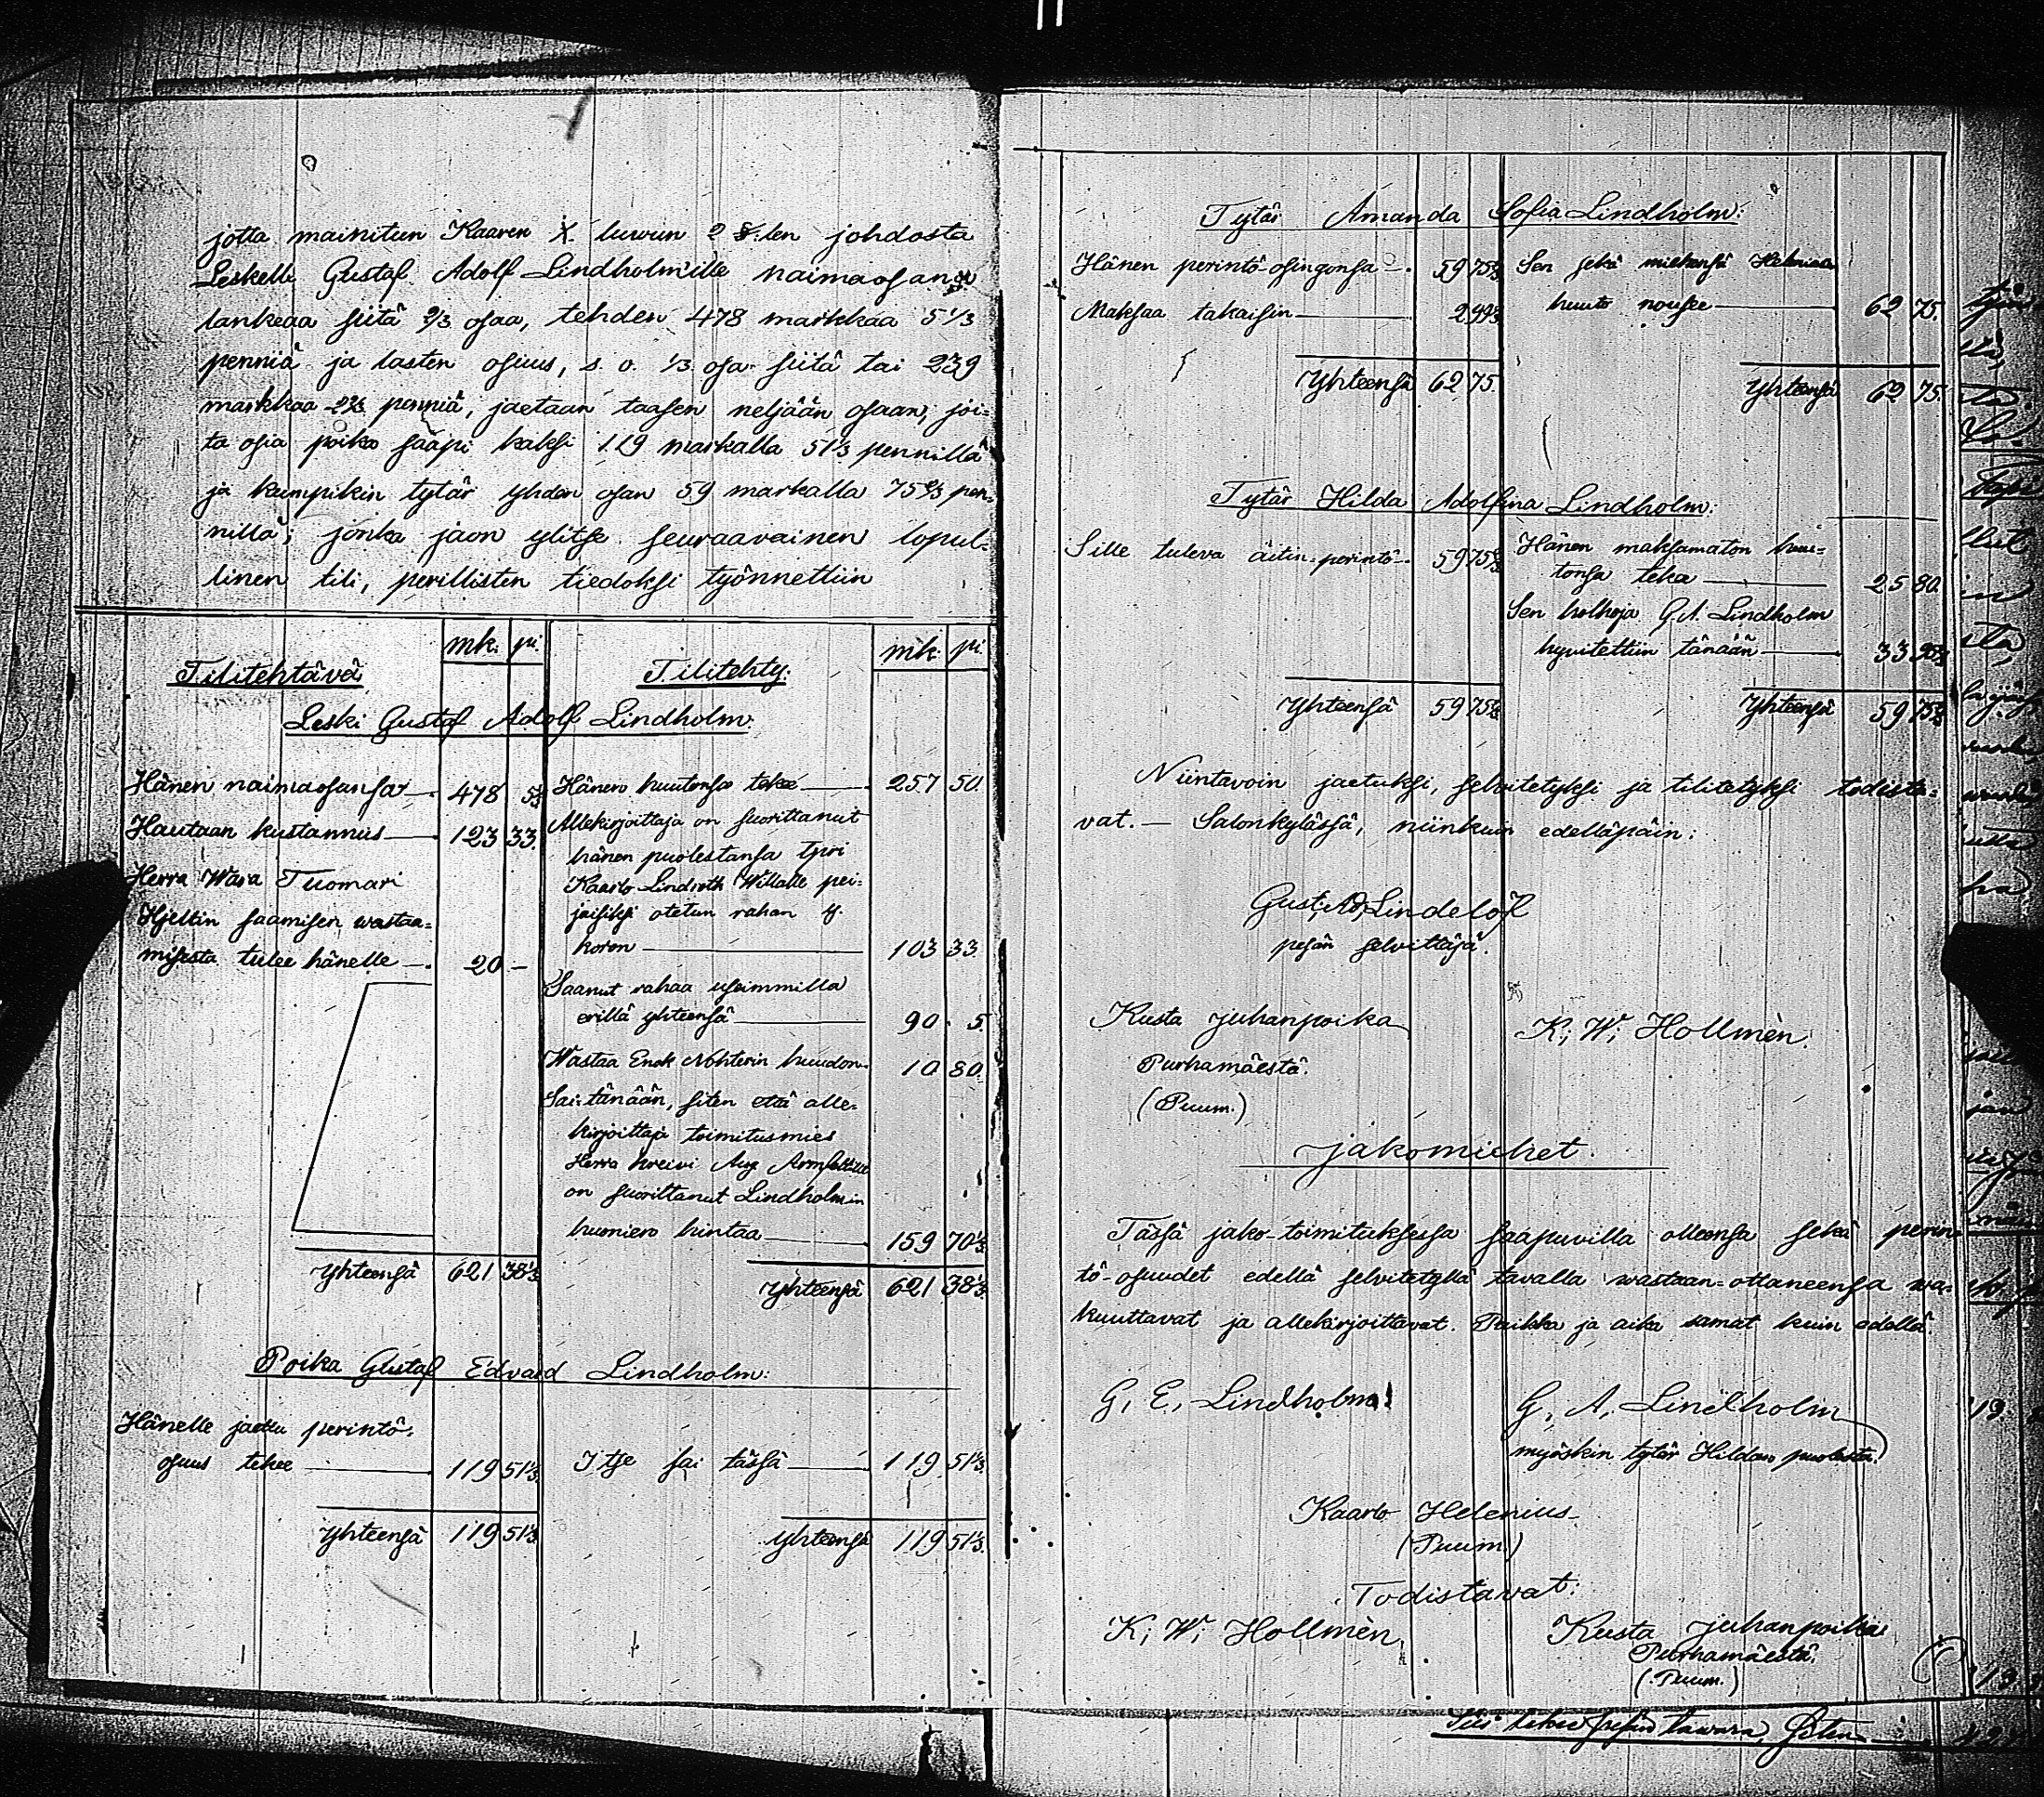 jotta mainitun Kaaren X. luvun 2 §:len johdosta
Leskelle Gustaf Adolf Lindholm'ille naimaosana
lankeaa siitä 2/3 osaa, tehden 478 markkaa 5 1/3
penniä ja lasten osuus, s. o. 1/3 osa siitä tai 239
markkaa 2 2/3 penniä, jaetaan taasen neljään osaan, joi-
ta osia poika saapi kaksi 119 markalla 51 1/3 pennillä
ja kumpikin tytär yhden osan 59 markalla 75 2/3 pen-
nillä; jonka jaon ylitse seuraavainen lopul-
linen tili, perillisten tiedoksi työnnettiin
Tilitehtävä. mk. pi. Tilitehty. mk. pi.
Leski Gustaf Adolf Lindholm.
Hänen naimaosansa 478 5 1/3
Hautaan kustannus 123 33.
Herra Wara Tuomari
Hjeltin saamisen wastaa-
misesta tulee hänelle 20 —
Yhteensä 621 38 1/3
Hänen huutonsa tekee 257 50.
Allekirjoittaja on suorittanut
hänen puolestansa
Kaarlo Lindroth Willalle
otetun rahan
koron 103 33
Saanut rahaa useimmilla
erillä yhteensä 90 5.
Wastaa Enok Nohterin huudon 10 80.
Sai tänään, siten että alle-
kirjoittaja toimitusmies
Herra kreivi Aug Armfeltille
on suorittanut Lindholmin
huoneen hintaa 159 70 1/3
Yhteensä 621 38 1/3
Poika Gustaf Edvard Lindholm:
Hänelle jaettu perintö-
osuus tekee 119 51 1/3
Yhteensä 119 51 1/3
Itse sai tässä 119 51 1/3
Yhteensä 119 51 1/3
Tytär Amanda Sofia Lindholm:
Hänen perintö-osingonsa 59 75 2/3
Maksaa takaisin 2 99 1/3
Yhteensä 62 75.
Sen sekä miehensä Helenius
huuto nousee 62 75.
Yhteensä 62 75.
Tytär Hilda Adolfina Lindholm:
Sille tuleva äitin-perintö 59 75 2/3
Yhteensä 59 75 2/3
Hänen maksamaton huu-
tonsa tekee 25 80.
Sen holhoja G. A. Lindholm
hyvitettiin tänään 33 95 2/3
Yhteensä 59 75 2/3
Niintavoin jaetuksi, selvitetyksi ja tilitetyksi todista-
vat. — Salonkylässä, niinkuin edelläpäin:
Gust. Ad. Lindelöf
pesän selvittäjä.
Kusta Juhanpoika K; W; Hollmèn.
Purhamäestä.
(Puum.)
Jakomiehet.
Tässä jako-toimituksessa saapuvilla olleensa sekä perin-
tö-osuudet edellä selvitetyllä tavalla wastaan-ottaneensa wa-
kuuttavat ja allekirjoittavat. Paikka ja aika samat kuin edellä.
G, E, Lindholm. G, A, Lindholm
myöskin tytär Hildan puolesta.
Kaarlo Helenius
(Puum.)
Todistavat:
K; W; Hollmèn. Kusta Juhanpoika
Purhamäestä.
(Puum.)